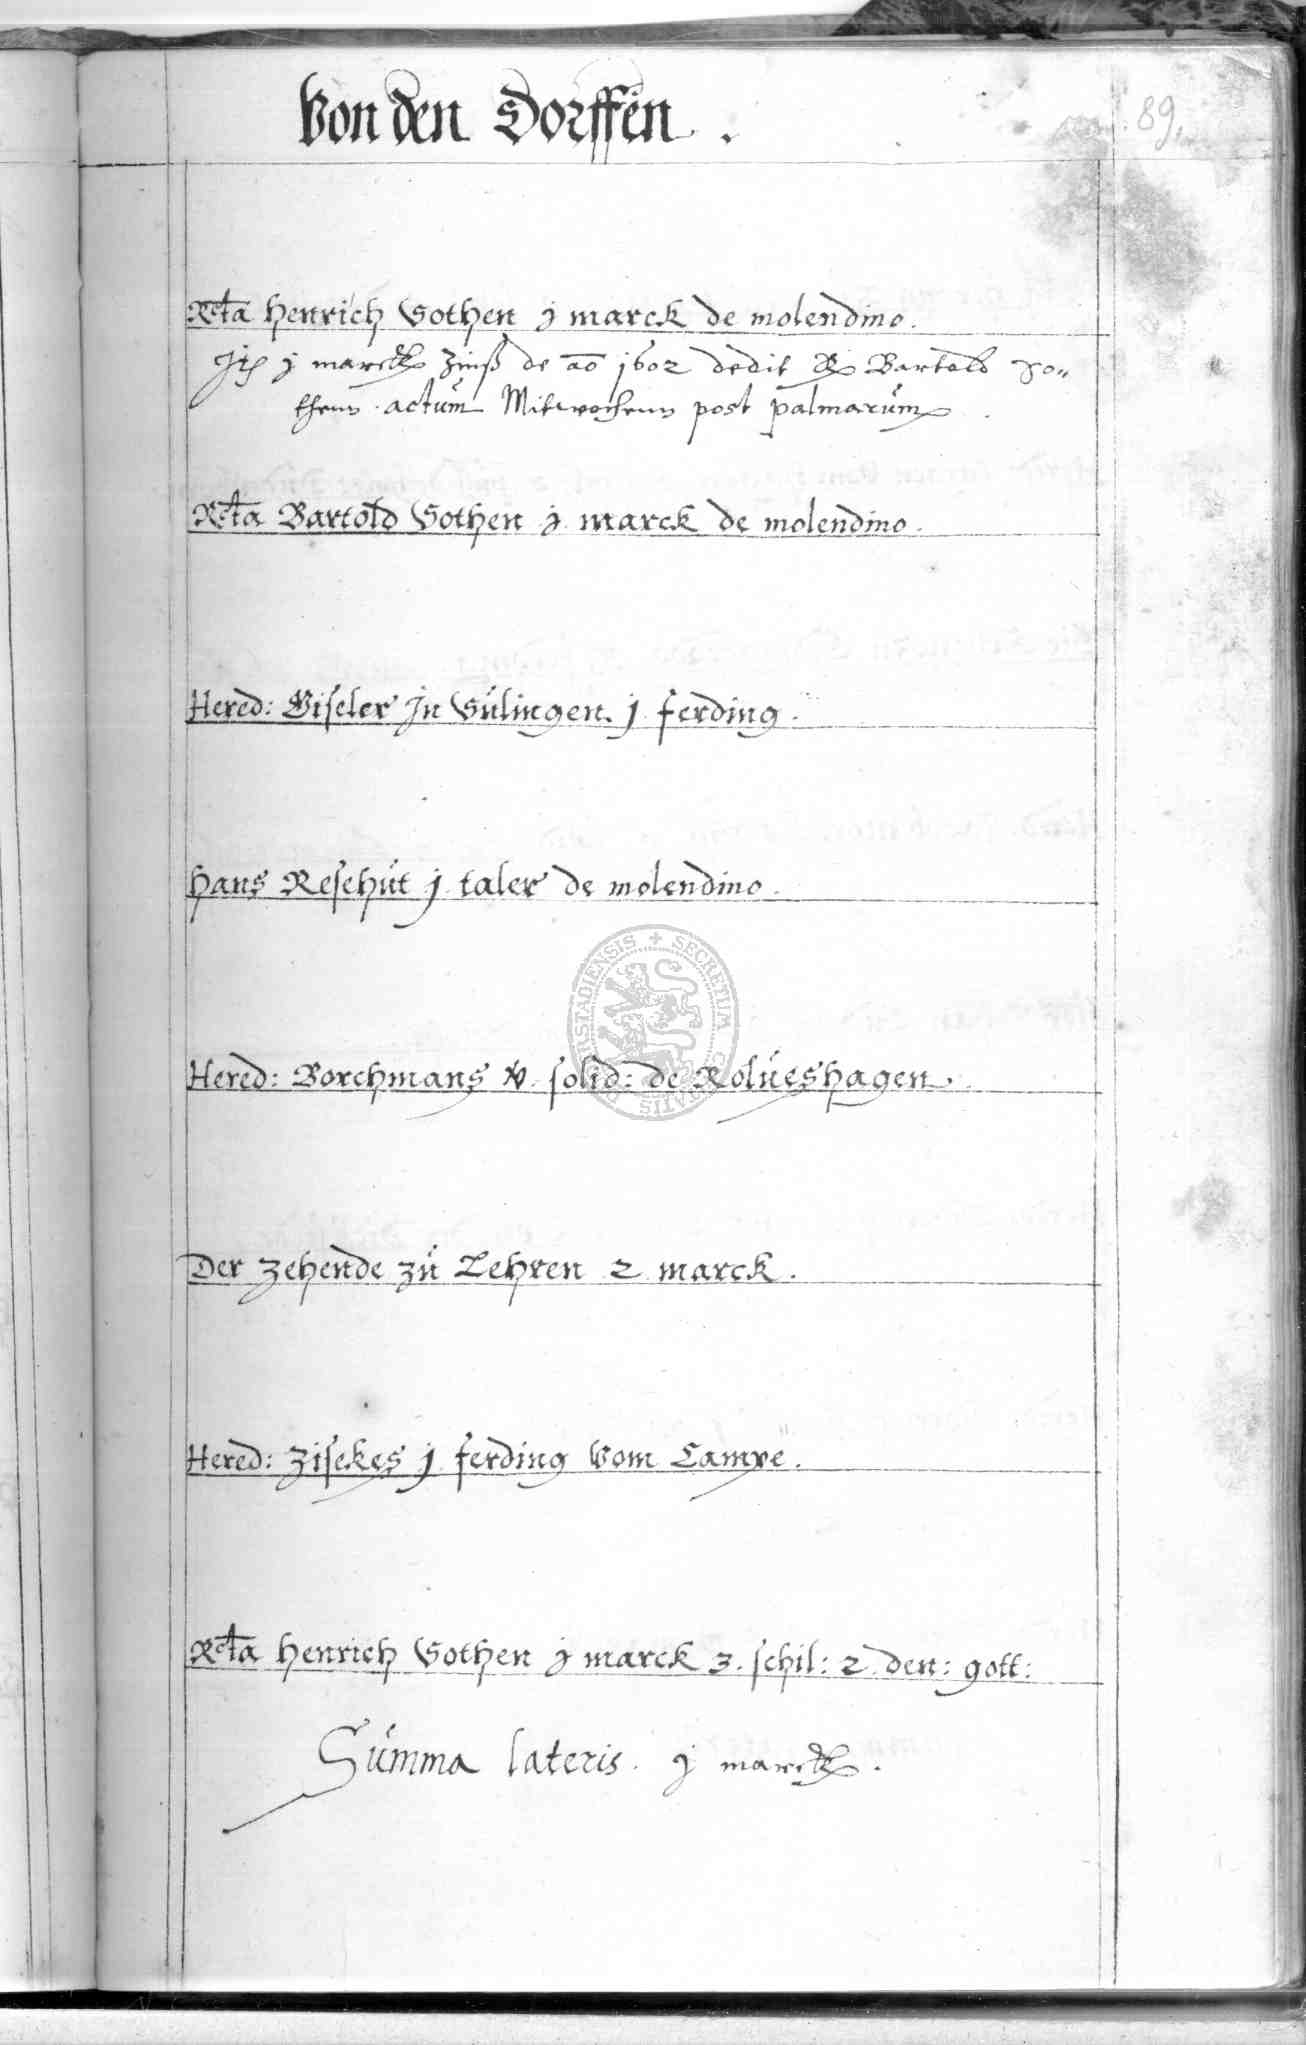 Von den Dorffen.
89.
Rcta Henrich Gothen j marck de molendino.
Itp j marck Zinß de ao 1602 dedit Bartold Go„
thenn actum Mitwochenn post palmarum
Rcta Bartold Gothen j marck de molendino.
Hered: Giseler In Gulingen. j ferding.
Hans Resehut j taler de molendino.
Hered: Borchmans v. solid: de Rolueshagen.
Der zehende zu Lehren 2 marck.
Hered: Zisekes j ferding vom Campe.
Rcta Henrich Gothen j marck 3. schil: 2. den: gott:
Summa lateris. j marck.
SECRETUM